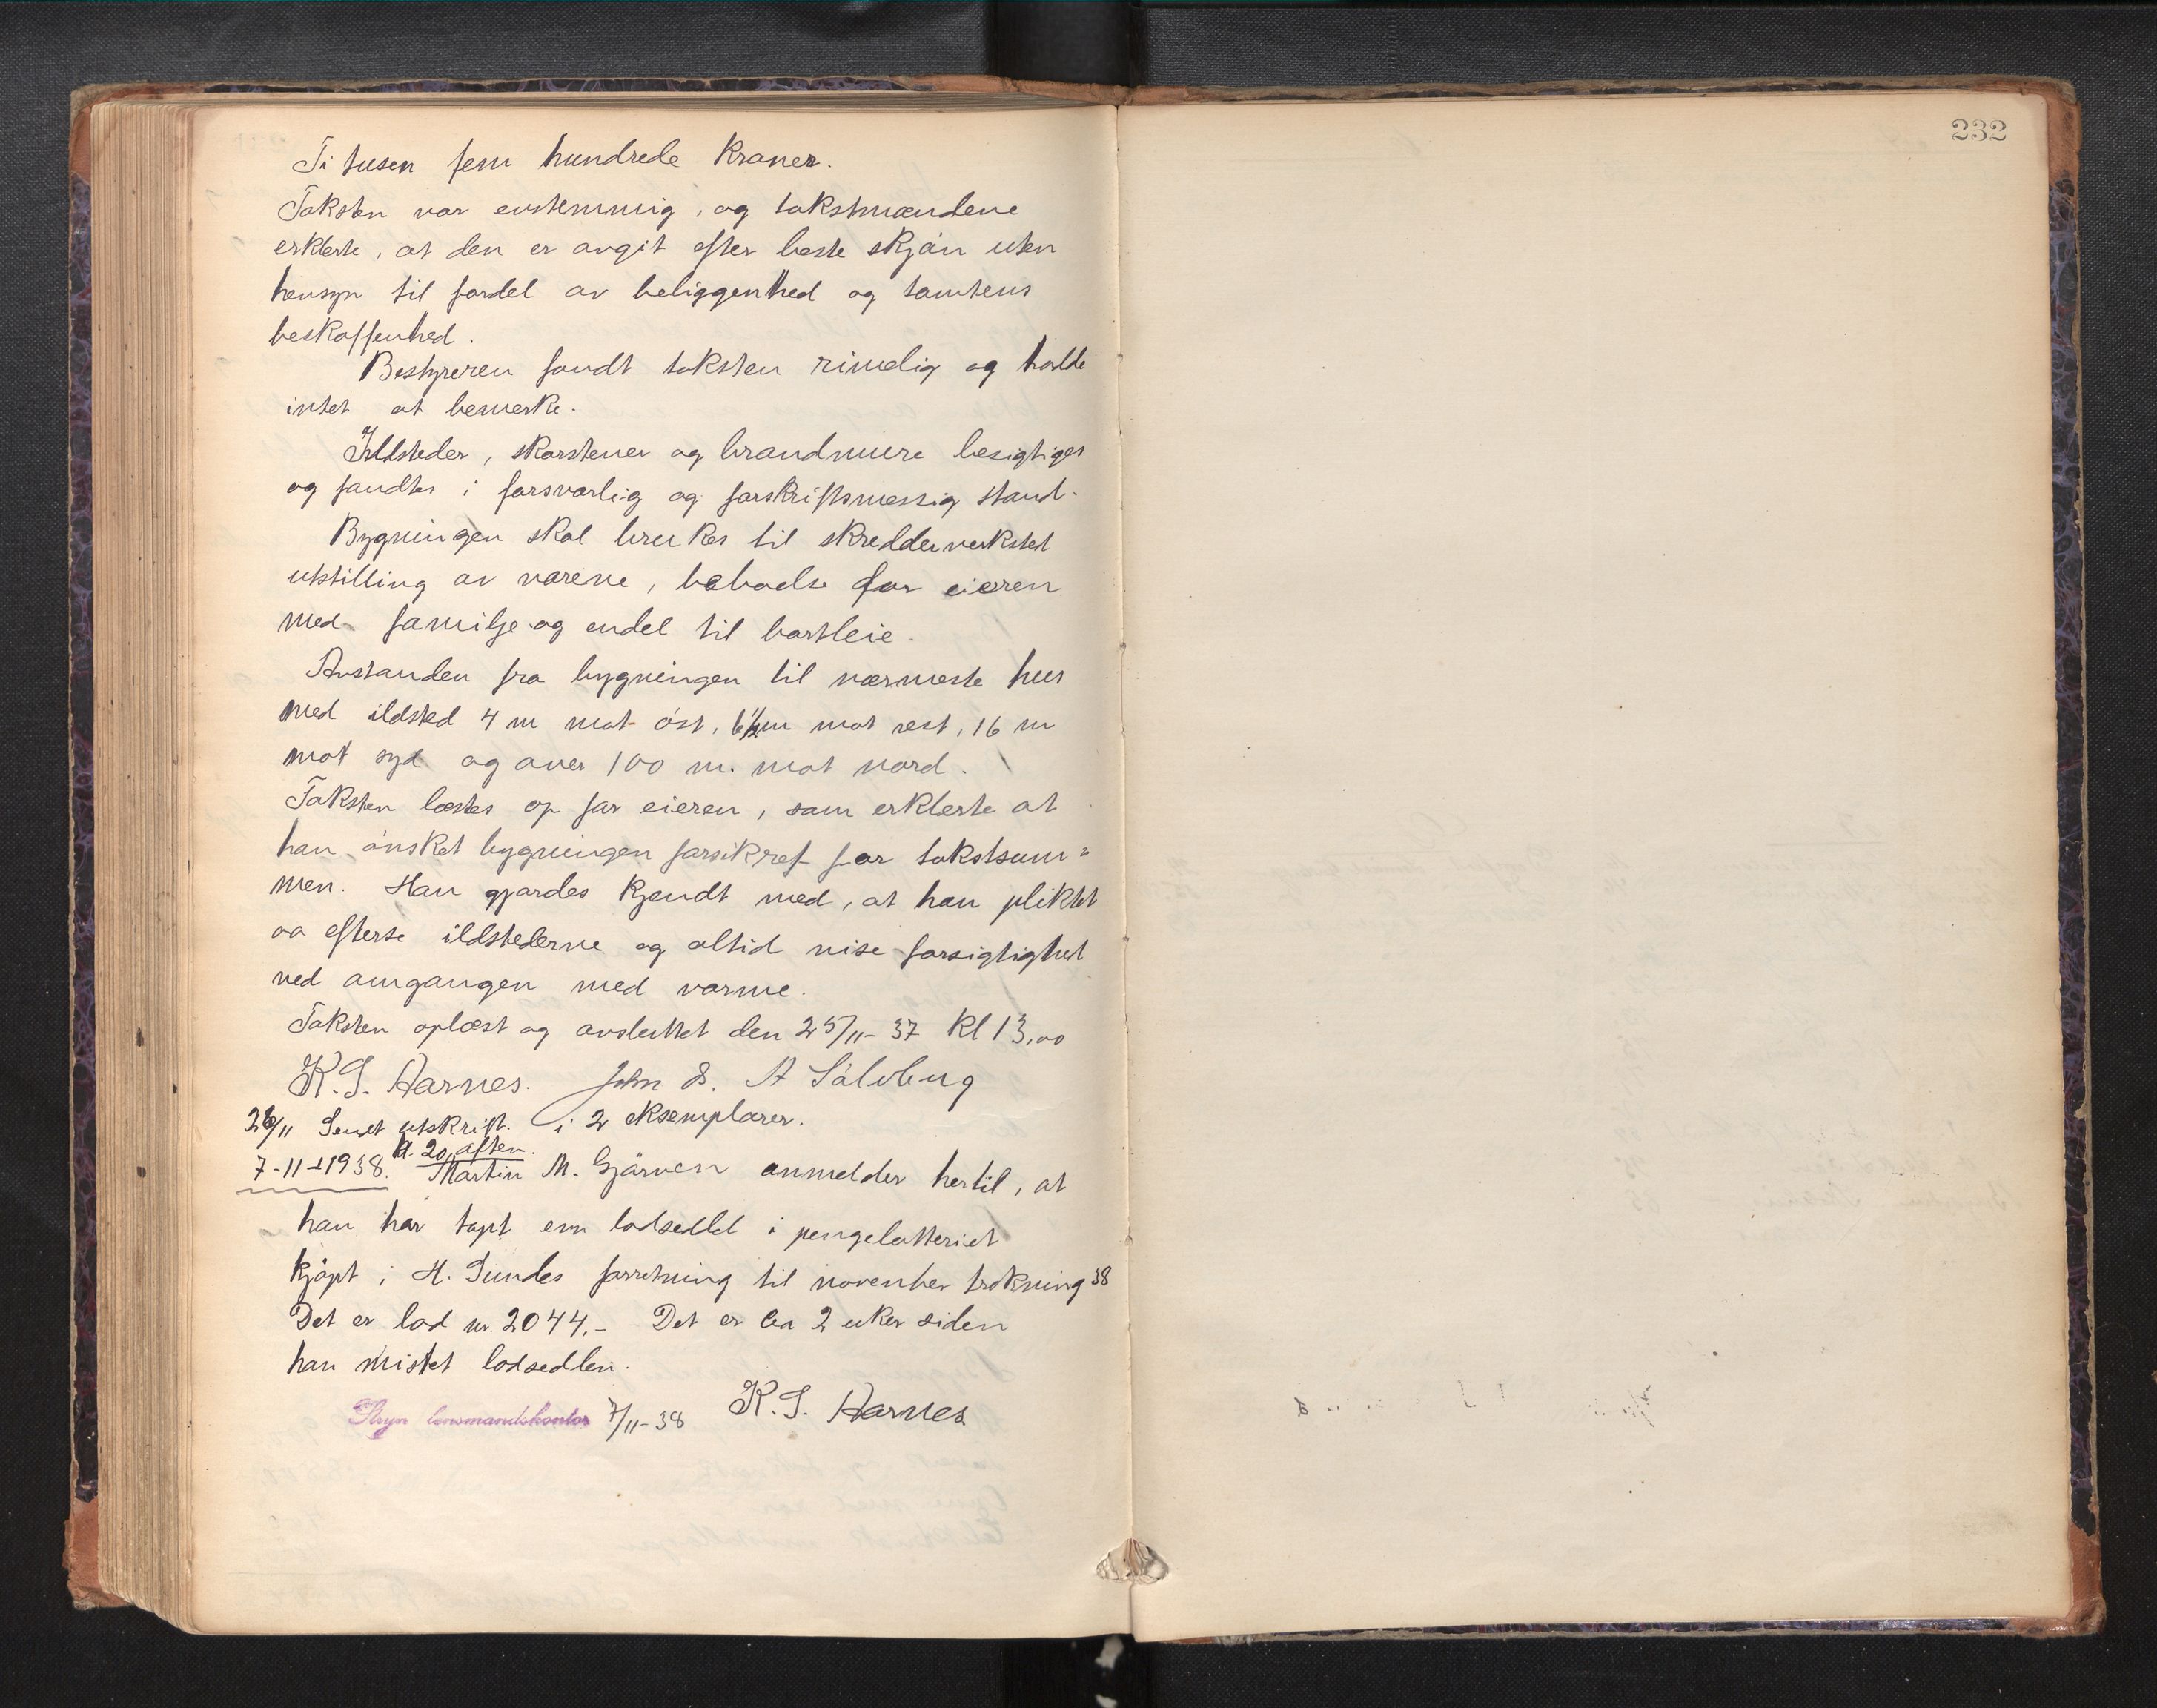 Ti tusen fem hundrede Kroner.
Taksten var enstemmig, og takstmændene
erklerte, at den er avgit efter beste skjøn uten
hensyn til fordel av beliggenhed og tomtens
beskaffenhed.
Bestyreren fandt taksten rimelig og hadde
intet at bemerke.
Ildsteder, skorstener og brandmure besigtiges
og fandtes i forsvarlig og forskriftsmessig stand.
Bygningen skal brukes til skredderverksted
utstilling av varene, beboelse for eieren
med familje og endel til bortleie.
Avstanden fra bygningen til nærmeste hus
med ildsted 4 m mot øst, 6½ m mot vest, 16 m
mot syd og over 100 m. mot nord.
Taksten læstes op for eieren, som erklerte at
han ønsket bygningen forsikret for takstsum=
men. Han gjordes kjendt med, at han pliktet
aa efterse ildstederne og altid vise forsigtighet
ved omgangen med varme.
Taksten oplæst og avsluttet den 25/11-37 Kl 13,00
K. S. Aarnes. John S. A Sølvberg
26/11 Sendt utskrift i 2 eksemplarer.
kl. 20 aften.
7-11-1938. Martin M. Gjørven anmelder hertil, at
han har tapt en lodseddel i pengelotteriet
kjøpt i H. Sundes forretning til november trekning 38
Det er lod nr. 2044.- Det er ca 2 uker siden
han mistet lodsedlen.
Stryn lensmandskontor 7/11-38 K. S. Aarnes
232